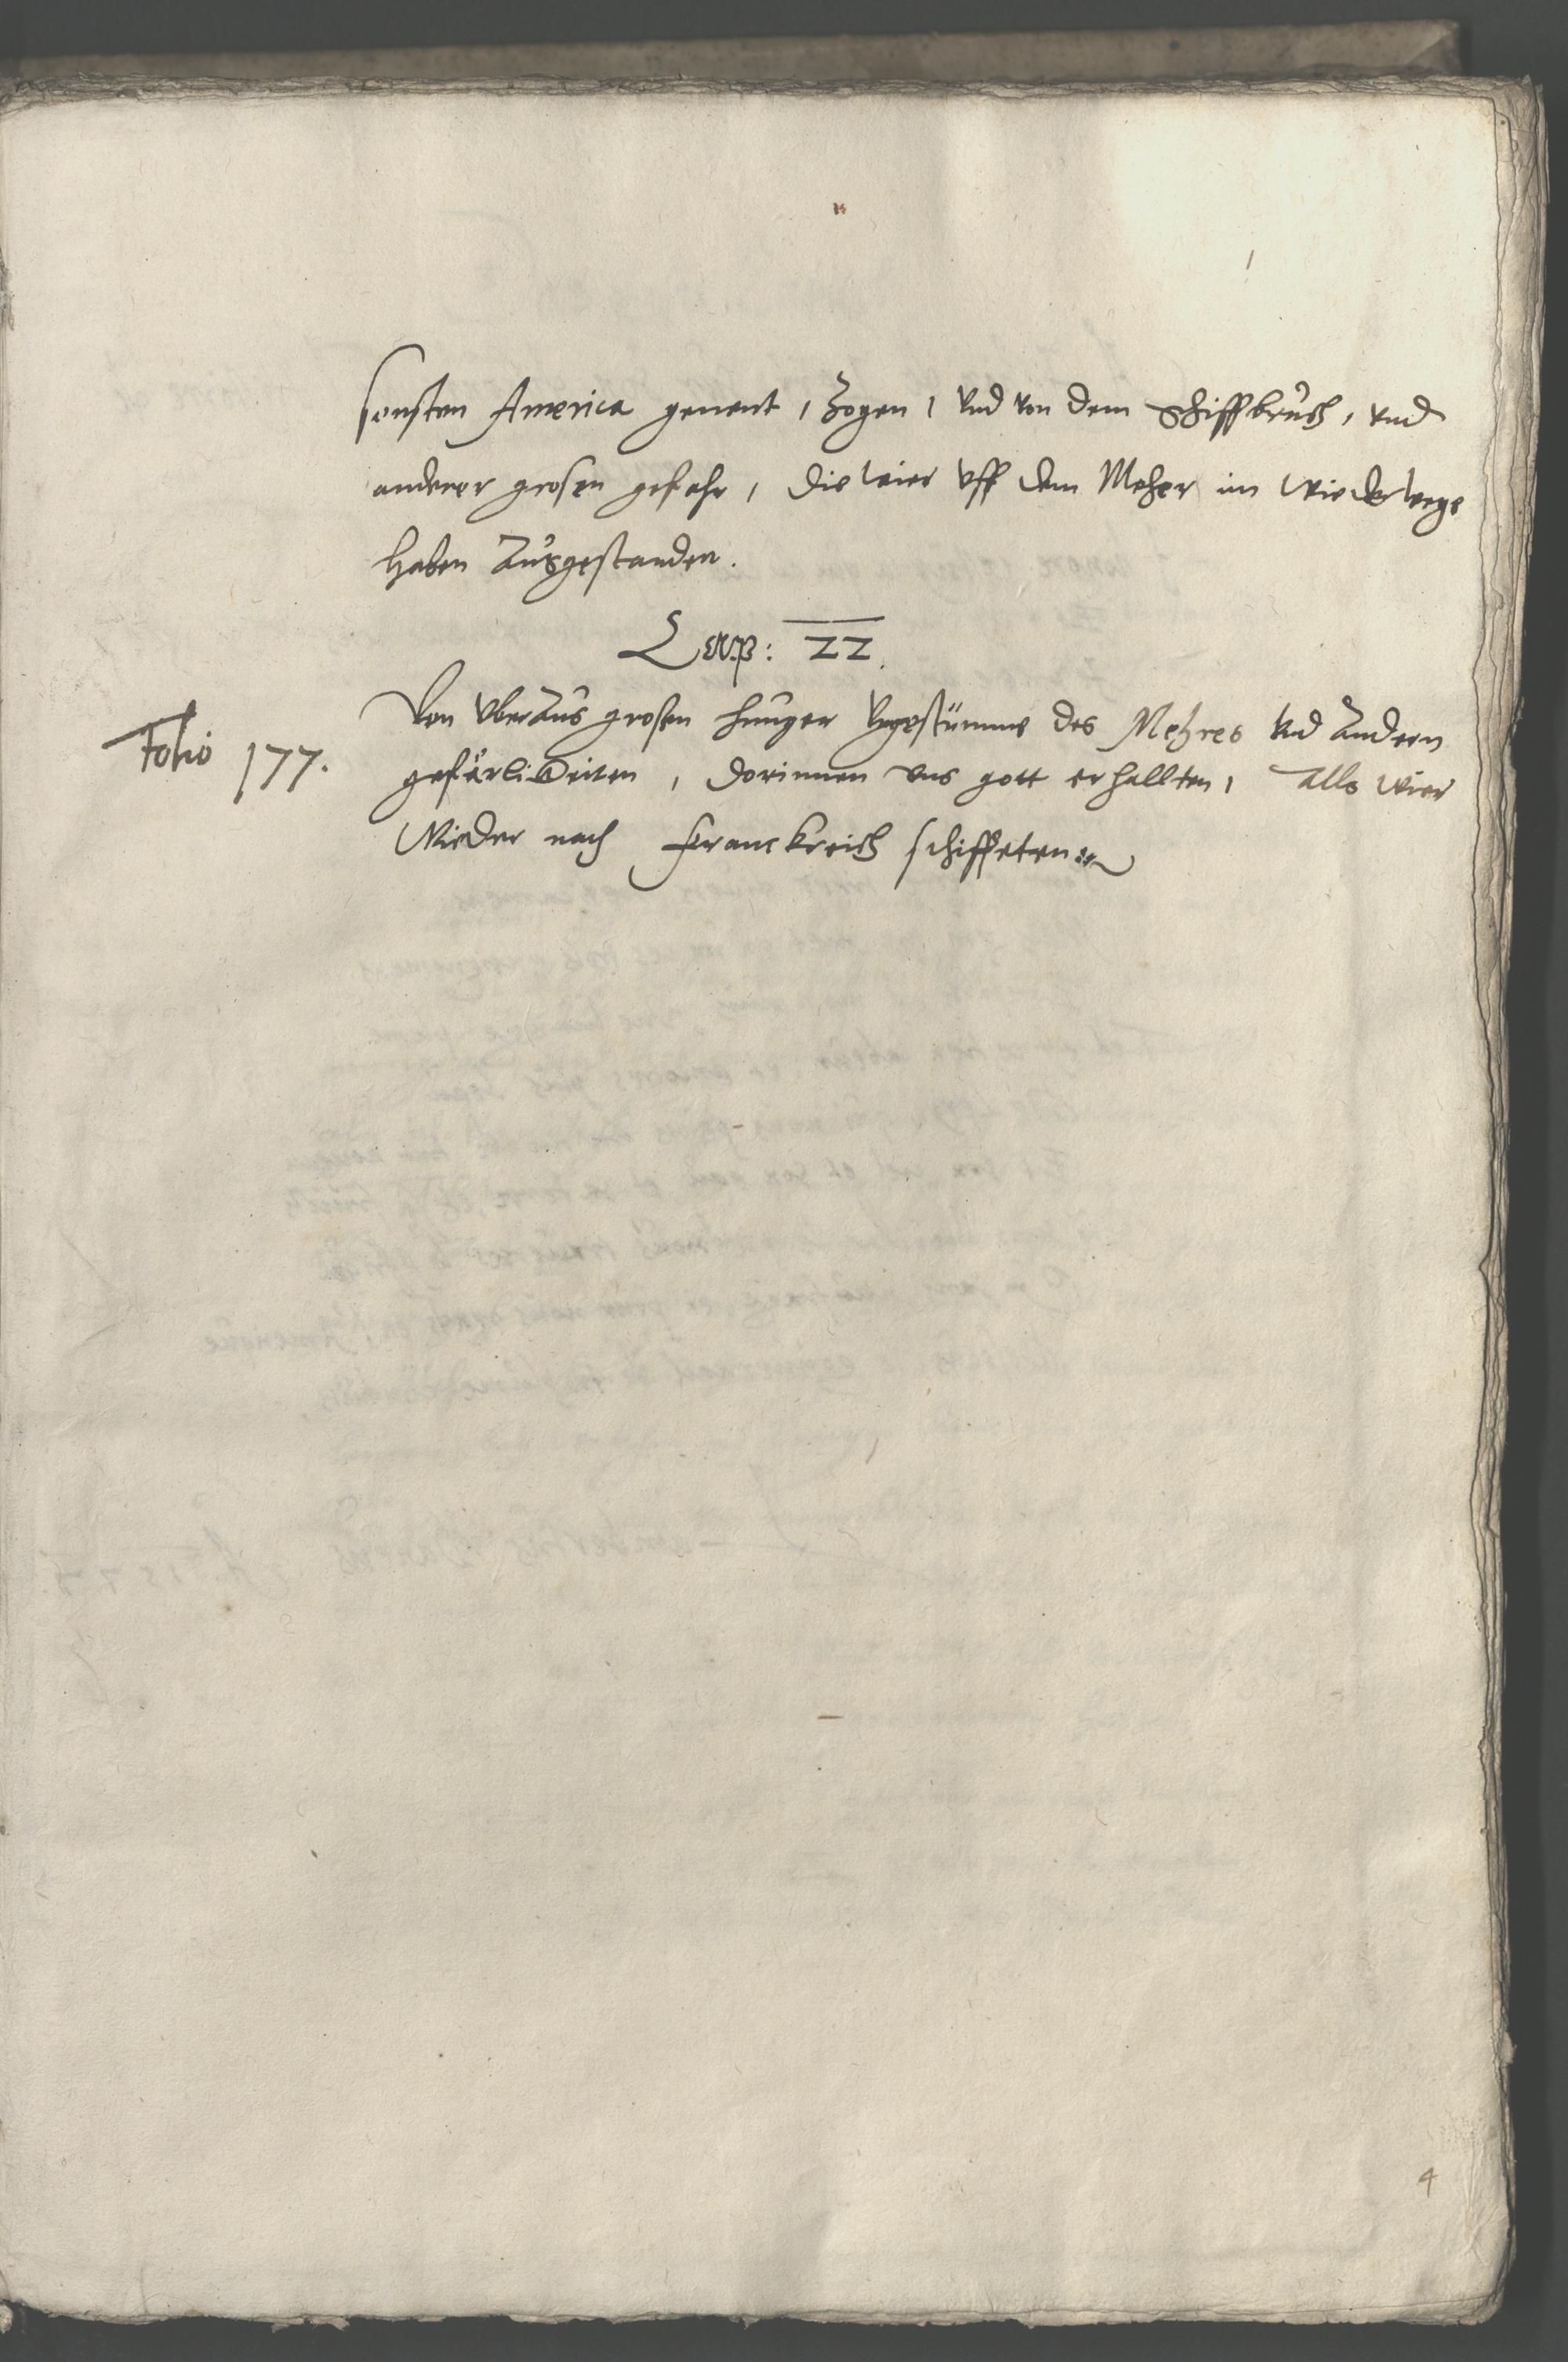 sonsten America genent, Zogen, Vnd von dem Schiffbruch, vnd
anderer grosen gefahr, die wier vff dem Meher im Wiederwege
haben Ausgestanden.
Cap: 22.
Von vberaus grosen hunger Vngestümme des Mehres Vnd Andern
Folio 177.
gefärlickeiten, dorinnen vns gott erhallten, Alls wier
Wieder nach Franckreich schiffeten
4